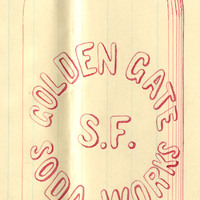 GOLDEN GATE
S.F.
SODA WORKS